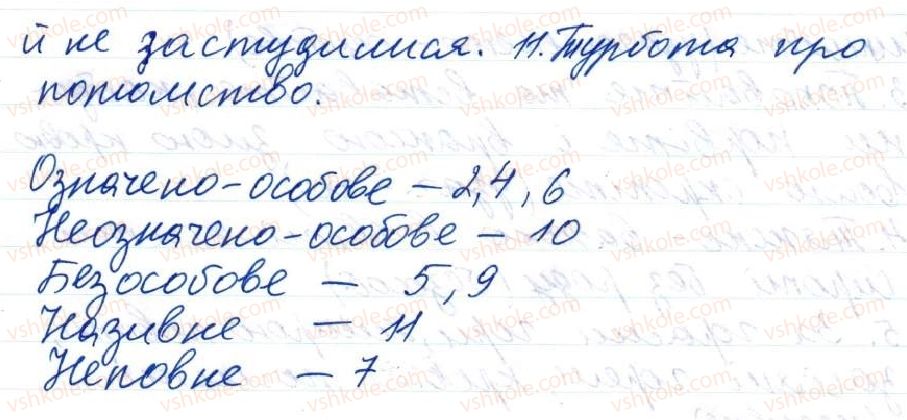 й не застудилися. 11. Турбота про
потомство.
Означено-особове – 2, 4, 6
Неозначено-особове – 10
Безособове – 5, 9
Називне – 11
Неповне – 7